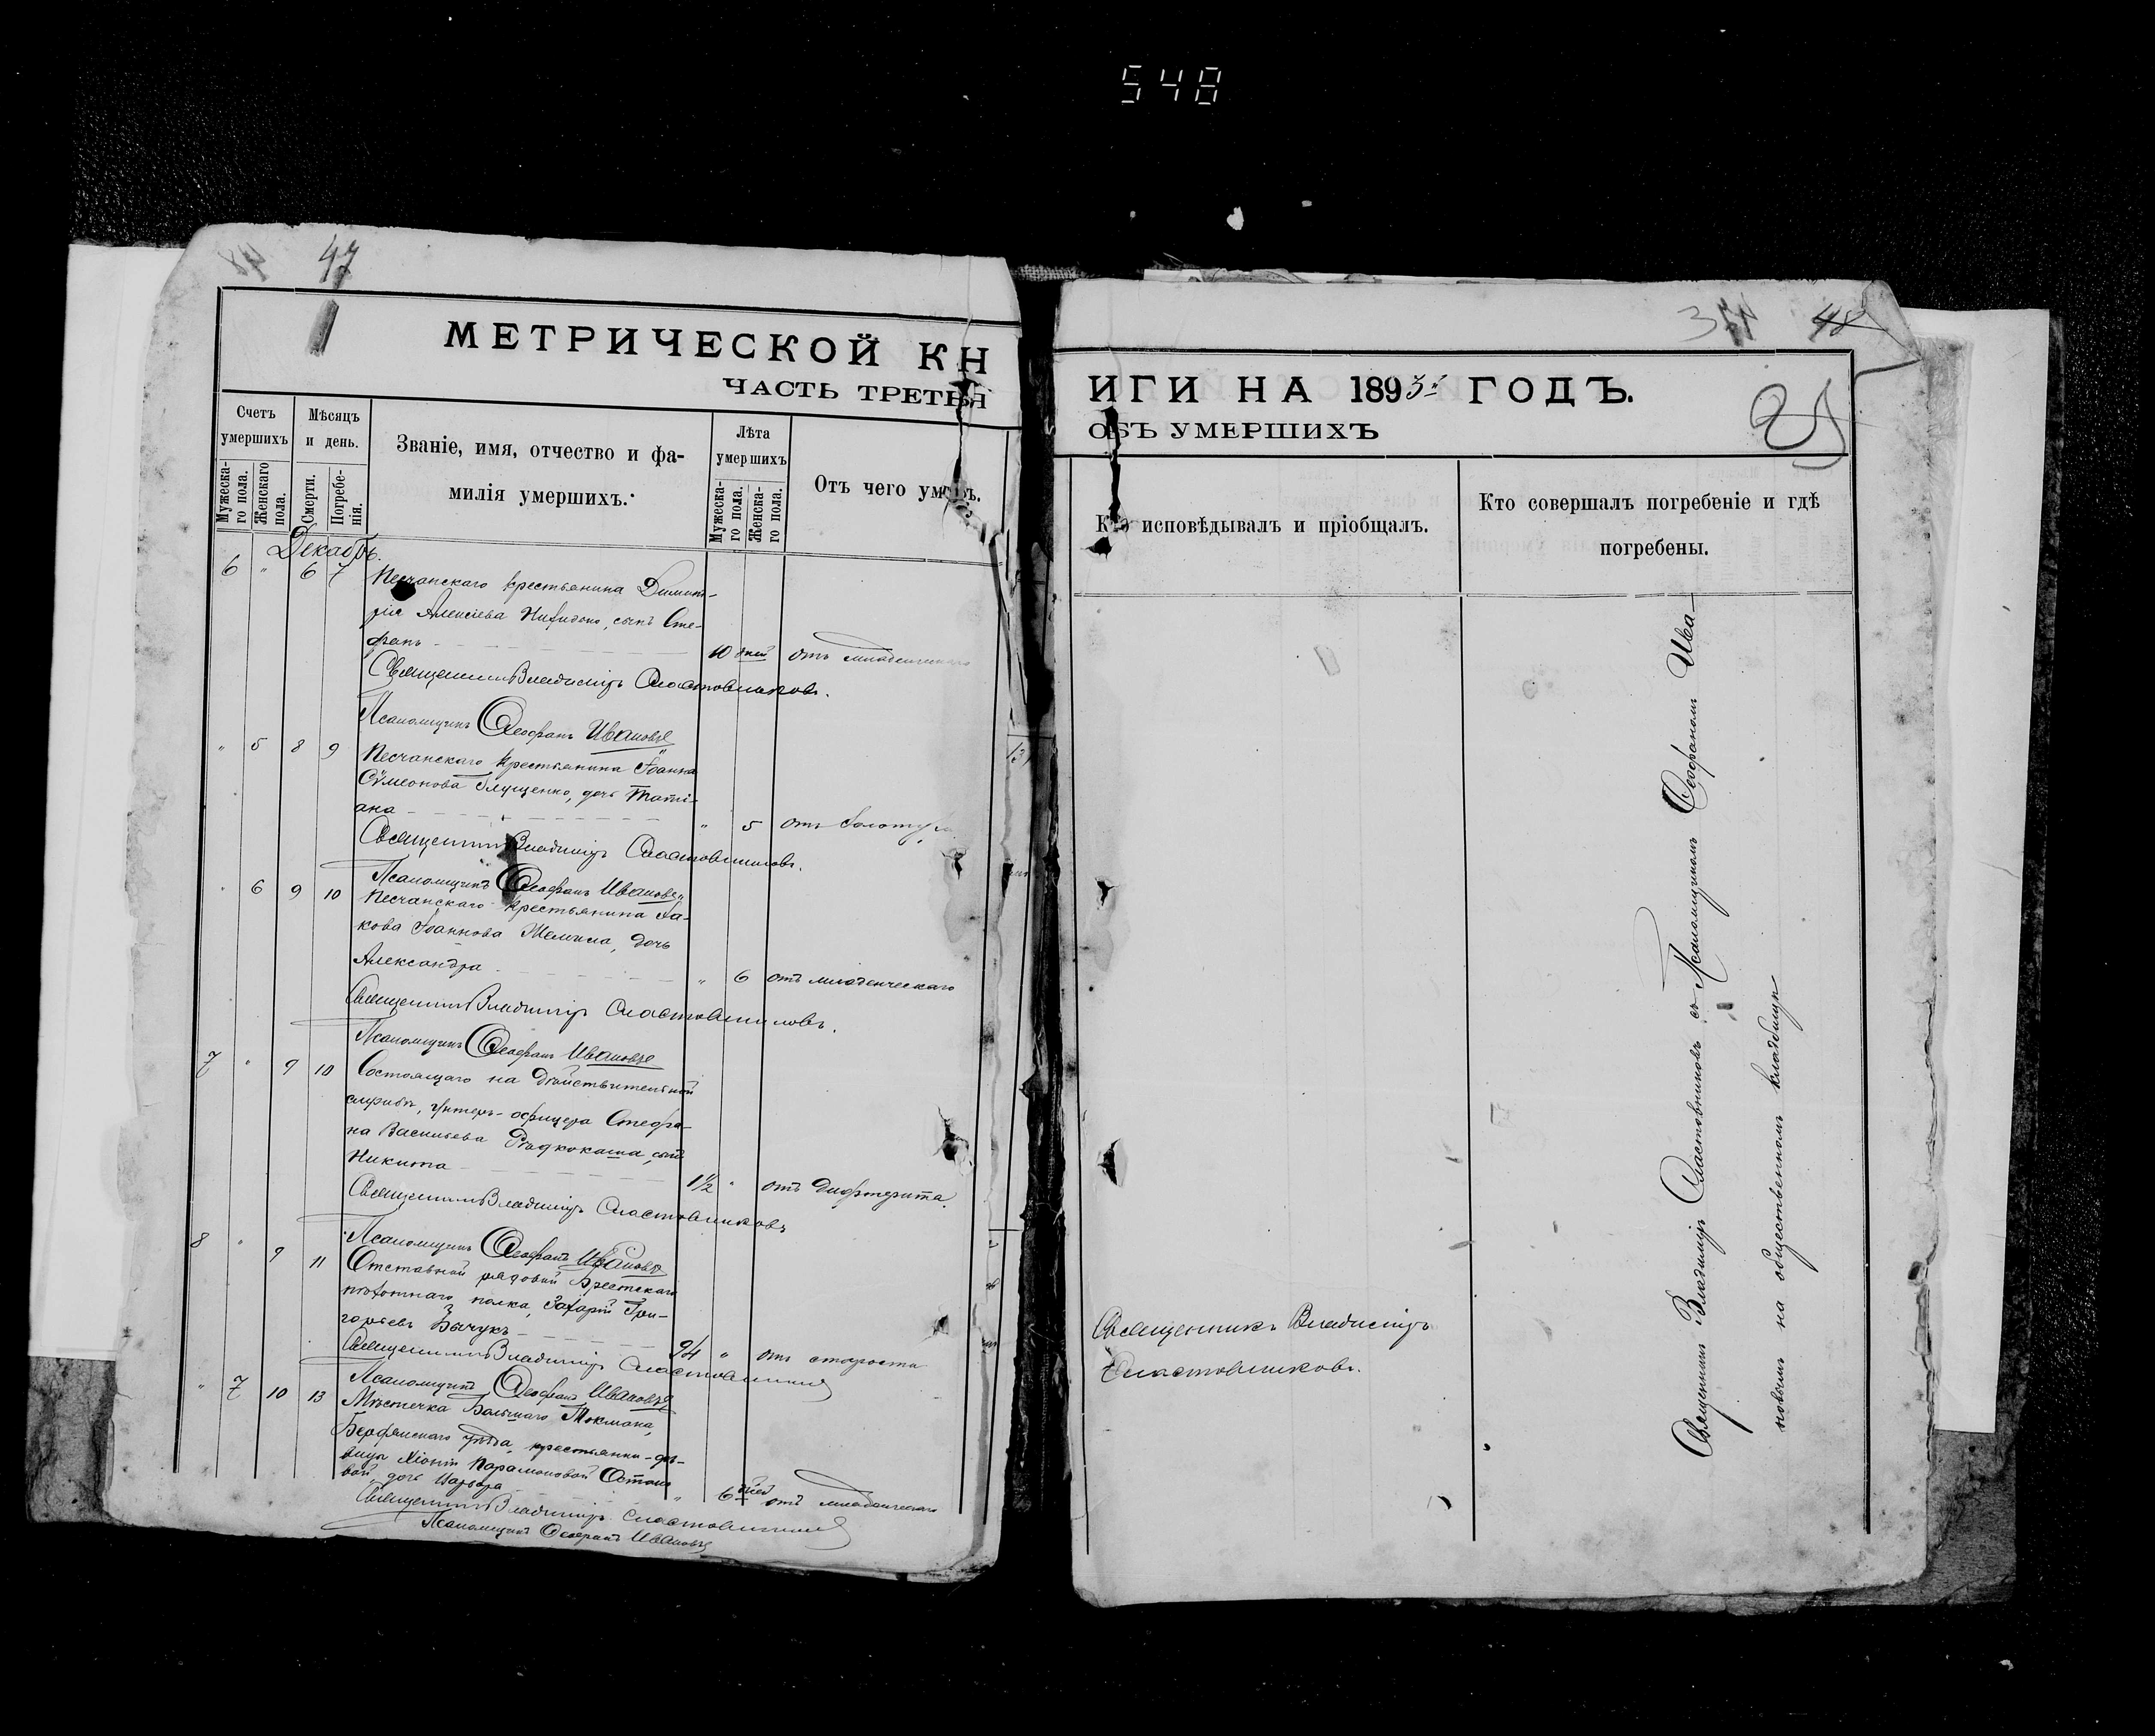 548
47
МЕТРИЧЕСКОЙ КН
ЧАСТЬ ТРЕТЬЯ
Счетъ умершихъ
Мужеска-го пола.
Женскаго пола.
Мѣсяцъ и день.
Смерти.
Погребе-нія.
Званіе, имя, отчество и фа-
милія умершихъ.
Лѣта умершихъ
Мужеска-го пола.
Женска-го пола.
Отъ чего умеръ.
Декабрь.
6 " 6 7 Песчанскаго крестьянина Димит-
рія Алексіева сынъ Сте-
фанъ 10 дней отъ младенческаго
Священникъ Владиміръ Сластовниковъ.
Псаломщикъ Феофанъ Ивановъ
" 5 8 9 Песчанскаго крестьянина Іоанна
Сѵмеонова Глущенко, дочь Татіа-
ана " 5 отъ золотухи
Священникъ Владиміръ Сластовниковъ.
Псаломщикъ Феофанъ Ивановъ
" 6 9 10 Песчанскаго крестьянина Іа-
кова Іоаннова дочь
Александра " 6 отъ младенческаго
Священникъ Владиміръ Сластовниковъ.
Псаломщикъ Феофанъ Ивановъ
7 " 9 10 Состоящаго на дѣйствительной
службѣ, унтеръ-офицера Стефа-
на Васильева Рѣдкокаша, сынъ
Никита 1½ " отъ дифтерита.
Священникъ Владиміръ Сластовниковъ
Псаломщикъ Феофанъ Ивановъ
8 " 9 11 Отставной рядовой Брестскаго
пѣхотнаго полка, Захарій Гри-
горьевъ 94 " отъ старости
Священникъ Владиміръ Сластовниковъ
Псаломщикъ Феофанъ Ивановъ
" 7 10 13 Мѣстечка Большаго Токмака,
Бердянскаго уѣзда, крестьянки-дѣ-
вицы Хіоніи Парамоновой
дочь Варвара " 6 дней отъ младенческаго
Священникъ Владиміръ Сластовниковъ
Псаломщикъ Феофанъ Ивановъ
48
ИГИ НА 1895й ГОДЪ.
ОБЪ УМЕРШИХЪ
Кто исповѣдывалъ и пріобщалъ.
Кто совершалъ погребеніе и гдѣ
погребены.
Священникъ Владиміръ
Сластовниковъ.
Священникъ Владиміръ Сластовниковъ съ Псаломщикомъ Феофаномъ Ива-
новымъ на общественномъ кладбищѣ